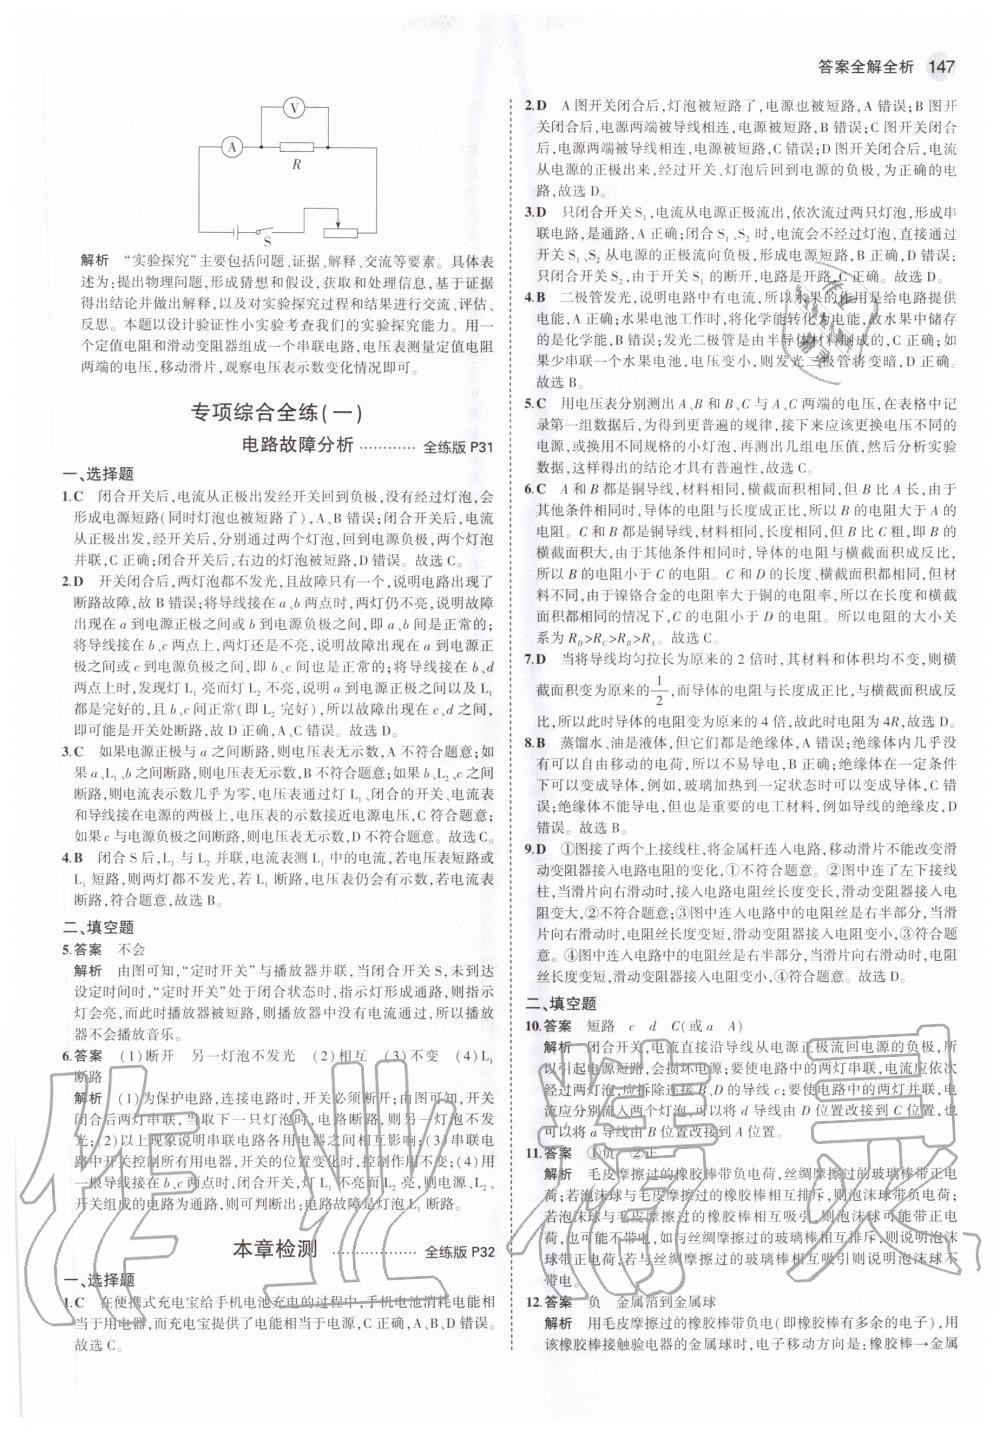 答案全解全析 147
V
A
R
S
解析 “实验探究”主要包括问题、证据、解释、交流等要素。具体表
述为:提出物理问题,形成猜想和假设,获取和处理信息,基于证据
得出结论并做出解释,以及对实验探究过程和结果进行交流、评估、
反思。本题以设计验证性小实验考查我们的实验探究能力。用一
个定值电阻和滑动变阻器组成一个串联电路,电压表测量定值电阻
两端的电压,移动滑片,观察电压表示数变化情况即可。
专项综合全练(一)
电路故障分析 ………… 全练版 P31
一、选择题
1.C 闭合开关后,电流从正极出发经开关回到负极,没有经过灯泡,会
形成电源短路(同时灯泡也被短路了),A、B错误;闭合开关后,电流
从正极出发,经开关后,分别通过两个灯泡,回到电源负极,两个灯泡
并联,C正确;闭合开关后,右边的灯泡被短路,D错误。故选C。
2.D 开关闭合后,两灯泡都不发光,且故障只有一个,说明电路出现了
断路故障,故B错误;将导线接在a、b两点时,两灯仍不亮,说明故障
出现在a到电源正极之间或b到电源负极之间,即a、b间是正常的;
将导线接在b、c两点上,两灯还是不亮,说明故障出现在b到电源正
极之间或c到电源负极之间,即b、c间也是正常的;将导线接在b、d
两点上时,发现灯L₁亮而灯L₂不亮,说明a到电源正极之间以及L₁
都是完好的,且b、c间正常(即L₂完好),所以故障出现在c、d之间,
即可能是开关处断路,故D正确,A、C错误。故选D。
3.C 如果电源正极与a之间断路,则电压表无示数,A不符合题意;如
果a、L₁、b之间断路,则电压表无示数,B不符合题意;如果b、L₂、c之
间断路,则电流表示数几乎为零,电压表通过灯L₁、闭合的开关、电流表
和导线接在电源的两极上,电压表的示数接近电源电压,C符合题意;
如果c与电源负极之间断路,则电压表无示数,D不符合题意。故选C。
4.B 闭合S后,L₁与L₂并联,电流表测L₁中的电流,若电压表短路或
L₁短路,则两灯都不发光,若灯L₁断路,电压表仍会有示数,若电流表
断路,符合题意,故选B。
二、填空题
5.答案 不会
解析 由图可知,“定时开关”与播放器并联,当闭合开关S,未到达
设定时间时,“定时开关”处于闭合状态时,指示灯形成通路,则指示
灯会亮,而此时播放器被短路,则播放器中没有电流通过,所以播放
器不会播放音乐。
6.答案 (1)断开 另一灯泡不发光 (2)相互 (3)不变 (4)L₁
断路
解析 (1)为保护电路,连接电路时,开关必须断开;由图可知,开关
闭合后两灯串联,当取下一只灯泡时,电路断路,则另一只灯泡不发
光;(2)以上现象说明串联电路各用电器之间相互影响;(3)串联电
路中开关控制所有用电器,开关的位置变化时,控制作用不变;(4)用
一根导线接在bc两点时,闭合开关,灯L₁不亮而L₂亮,则电源、L₂、
开关组成的电路为通路,则可判断出:电路故障是灯泡L₁断路。
本章检测 ……………… 全练版 P32
一、选择题
1.C 在便携式充电宝给手机电池充电的过程中,手机电池消耗电能相
当于用电器,而充电宝提供了电能相当于电源,C正确,A、B、D错误。
故选C。
2.D A图开关闭合后,灯泡被短路了,电源也被短路,A错误;B图开
关闭合后,电源两端被导线相连,电源被短路,B错误;C图开关闭合
后,电源两端被导线相连,电源被短路,C错误;D图开关闭合后,电流
从电源的正极出来,经过开关、灯泡后回到电源的负极,为正确的电
路,故选D。
3.D 只闭合开关S₁,电流从电源正极流出,依次流过两只灯泡,形成串
联电路,是通路,A正确;闭合S₁、S₂时,电流会不经过灯泡,直接通过
开关S₁、S₂从电源的正极流向负极,形成电源短路,B正确,D错误;
只闭合开关S₂,由于开关S₁的断开,电路是开路,C正确。故选D。
4.B 二极管发光,说明电路中有电流,所以水果的作用是给电路提供
电能,A正确;水果电池工作时,将化学能转化为电能,故水果中储存
的是化学能,B错误;发光二极管是由半导体材料制成的,C正确;如
果少串联一个水果电池,电压变小,则发光二极管将变暗,D正确。
故选B。
5.C 用电压表分别测出A、B和B、C与A、C两端的电压,在表格中记
录第一组数据后,为得到更普遍的规律,接下来应该更换电压不同的
电源,或换用不同规格的小灯泡,再测出几组电压值,然后分析实验
数据,这样得出的结论才具有普遍性,故选C。
6.C A和B都是铜导线,材料相同,横截面积相同,但B比A长,由于
其他条件相同时,导体的电阻与长度成正比,所以B的电阻大于A的
电阻。C和B都是铜导线,材料相同,长度相同,但B比C粗,即B的
横截面积大,由于其他条件相同时,导体的电阻与横截面积成反比,
所以B的电阻小于C的电阻。C和D的长度、横截面积都相同,但材
料不同,由于镍铬合金的电阻率大于铜的电阻率,所以在长度和横截
面积都相同的情况下,C的电阻小于D的电阻。所以电阻的大小关
系为R_D>R_C>R_B>R_A。故选C。
7.D 当将导线均匀拉长为原来的2倍时,其材料和体积均不变,则横
截面积变为原来的1/2,而导体的电阻与长度成正比,与横截面积成反
比,所以此时导体的电阻变为原来的4倍,故此时电阻为4R,故选D。
8.B 蒸馏水、油是液体,但它们都是绝缘体,A错误;绝缘体内几乎没
有可以自由移动的电荷,所以不易导电,B正确;绝缘体在一定条件
下可以变成导体,例如,玻璃加热到一定状态时可以变成导体,C错
误;绝缘体不能导电,但也是重要的电工材料,例如导线的绝缘皮,D
错误。故选B。
9.D ①图接了两个上接线柱,将金属杆连入电路,移动滑片不能改变滑
动变阻器接入电路电阻的变化,①不符合题意。②图中连了左下接线
柱,当滑片向右滑动时,接入电路电阻丝长度变长,滑动变阻器接入电
阻变大,②不符合题意;③图中连入电路中的电阻丝是右半部分,当滑
片向右滑动时,电阻丝长度变短,滑动变阻器接入电阻变小,③符合题
意。④图中连入电路的电阻丝是右半部分,当滑片向右滑动时,电阻丝
长度变短,滑动变阻器接入电阻变小,④符合题意。故选D。
二、填空题
10.答案 短路 c d C(或a A)
解析 闭合开关,电流直接沿导线从电源正极流回电源的负极,所
以引起电源短路,会烧坏电源;要使电路中的两灯串联,电流应依次
经过两灯泡,应拆除连接B、D的导线c;要使电路中的两灯并联,电
流应分别流入两个灯泡,可以将d导线由D位置改接到C位置,也
可以将a导线由B位置改接到A位置。
11.答案 ①负 ②正
解析 毛皮摩擦过的橡胶棒带负电荷,丝绸摩擦过的玻璃棒带正电
荷;若泡沫球与毛皮摩擦过的橡胶棒相互排斥,则泡沫球带负电荷;
若泡沫球与毛皮摩擦过的橡胶棒相互吸引,则泡沫球可能带正电
荷,也可能不带电,如与丝绸摩擦过的玻璃棒相互排斥,说明泡沫
球带正电荷;若与丝绸摩擦过的玻璃棒相互吸引则说明泡沫球不
带电。
12.答案 负 金属箔到金属球
解析 用毛皮摩擦过的橡胶棒带负电(即橡胶棒有多余的电子),用
该橡胶棒接触验电器的金属球时,电子移动方向是:橡胶棒→金属
作业精灵